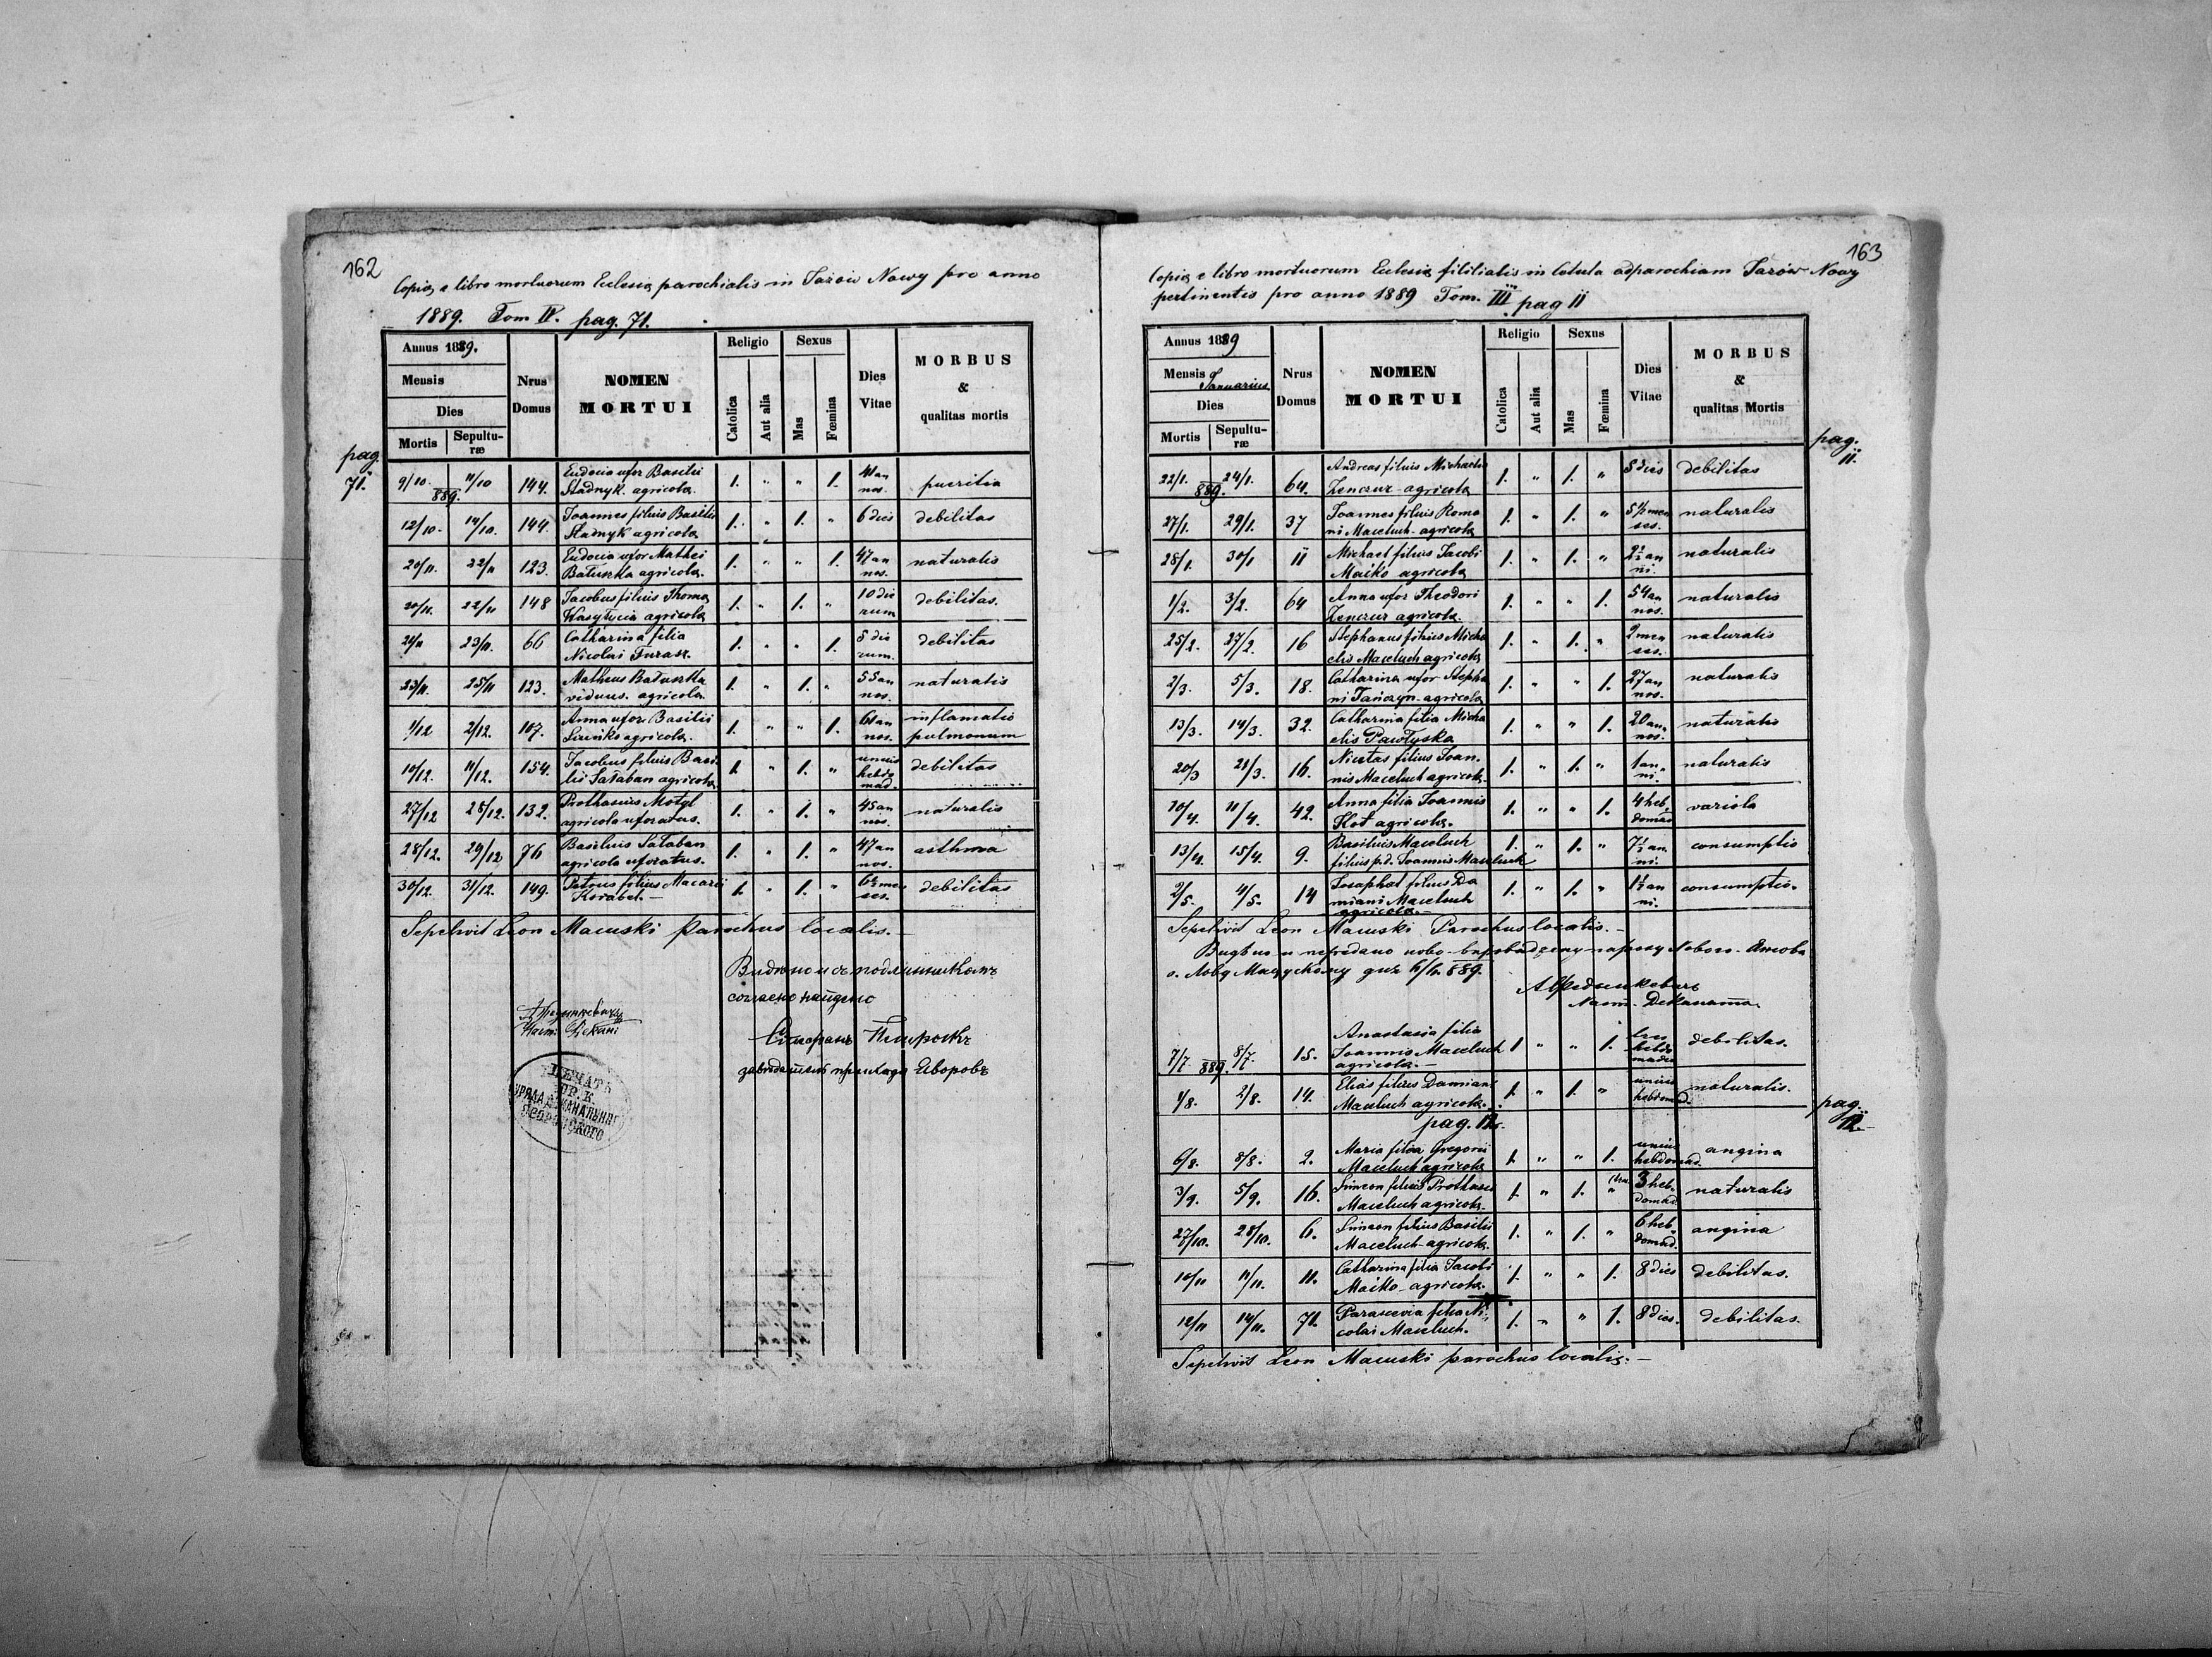 162
Copia e libro mortuorum Ecclesia parochialis in Jazów Nowy pro anno
1889. Tom IV. pag. 71.
Annus 1889.
Mensis
Dies
Mortis Sepulturæ
Nrus Domus
NOMEN MORTUI
Religio
Catolica Aut alia
Sexus
Mas Fœmina
Dies Vitae
MORBUS & qualitas mortis
pag. 71.
9/10. 889. 11/10 144. Eudocia uxor Basilii Stadnyk. agricola. 1. " " 1. 41 annos. pueritia
12/10. 14/10. 144. Joannes filius Basilii agricola 1. " 1. " 6 dies debilitas
20/11. 22/11 123. Eudocia uxor Mathei Batuszka agricola. 1. " " 1. 47 annos. naturalis
20/11. 22/11 148 Jacobus filius Thoma agricola 1. " 1. " 10 dierum debilitas.
21/11 23/11. 66 Catharina filia Nicolai Furasz. 1. " " 1. 5 dierum. debilitas
23/11. 25/11 123. Matheus Batuszka viduus. agricola. 1. " 1. " 55 annos. naturalis
1/12 2/12. 107. Anna uxor Basilii agricola. 1. " " 1. 61 annos. inflamatio pulmonum
10/12. 11/12. 154. Jacobus filius Basilii Sałaban agricola. 1. " 1. " unius hebdomad. debilitas
27/12 28/12. 132. Prothasius Motyl agricola uxoratus. 1. " 1. " 45 annos. naturalis
28/12. 29/12 76 Basilius Sałaban agricola uxoratus. 1. " 1. " 47 annos. asthma
30/12. 31/12. 149. Petrus filius Macarii Korabel. 1. " 1. " 6½ menses. debilitas
Sepelivit Leon Macuski parochus localis.
Видѣно и съ подлинникомъ
согласно найдено
завѣдатель прихода Яворовъ
ПЕЧАТЬ
ГР. К.
УРЯДА ДЕКАНАЛЬНОГО
ЯВОРОВСКОГО
163
Copia e libro mortuorum Ecclesia fililialis in Cetula adparochiam Jazów Nowy
pertinentis pro anno 1889 Tom. III pag 11
Annus 1889
Mensis Januarius
Dies
Mortis Sepulturæ
Nrus Domus
NOMEN MORTUI
Religio
Catolica Aut alia
Sexus
Mas Fœmina
Dies Vitae
MORBUS & qualitas Mortis
pag. 11.
22/1. 889. 24/1. 64. Andreas filius Michaelis Zenczur agricola 1. " 1. " 8 dies debilitas
27/1. 29/1. 37 Joannes filius Romani Maceluch agricola 1. " 1. " 5½ menses. naturalis
28/1. 30/1 11 Michael filius Jacobi Maiko agricola 1. " 1. " 2½ anni. naturalis
1/2. 3/2. 64 Anna uxor Theodori Zenczur agricola. 1. " " 1. 54 annos. naturalis
25/2. 27/2. 16 Stephanus filius Michaelis Maceluch agricola 1. " 1. " 2 menses. naturalis
2/3. 5/3. 18. Catharina uxor Stephani agricola 1. " " 1. 27 annos. naturalis
13/3. 14/3. 32. Catharina filia Michaelis Pawłyska 1. " " 1. 20 annos. naturalis
20/3 21/3. 16. Nicetas filius Joannis Maceluch agricola. 1. " 1. " 1 anni. naturalis
10/4. 11/4. 42. Anna filia Joannis Kot agricola. 1. " " 1. 4 hebdomad variola
13/4. 15/4. 9. Basilius Maceluch filius p.d. Joannis Maceluch 1. " 1. " 7½ anni. consumptio
2/5. 4/5. 14 Josaphat filius Damiani Maceluch agricola. 1. " 1. " 1½ anni. consumptio.
Sepelivit Leon Macuski Parochus localis.
7/7. 889. 8/7. 15. Anastasia filia Joannis Maceluch agricola. 1 " " 1. tres hebdomades debilitas.
1/8. 2/8. 14. Elias filius Damiani Maceluch agricola. 1. " 1. " unius hebdomad. naturalis.
pag. 12.
pag. 12.
6/8. 8/8. 2. Maria filia Gregorii Maceluch agricola 1. " " 1. unius hebdomad. angina
3/9. 5/9. 16. Simeon filius Prothasii Maceluch agricola. 1. " 1. " 3 hebdomad. naturalis
27/10. 28/10. 6. Simeon filius Basilii Maceluch agricola. 1. " 1. " 6 hebdomad. angina
10/11 11/11. 11. Catharina filia Jacobi Maiko agricola. 1. " " 1. 8 dies debilitas.
12/11 14/11. 71. Parascevia filia Nicolai Maceluch. 1. " " 1. 8 dies. debilitas.
Sepelivit Leon Macuski parochus localis.